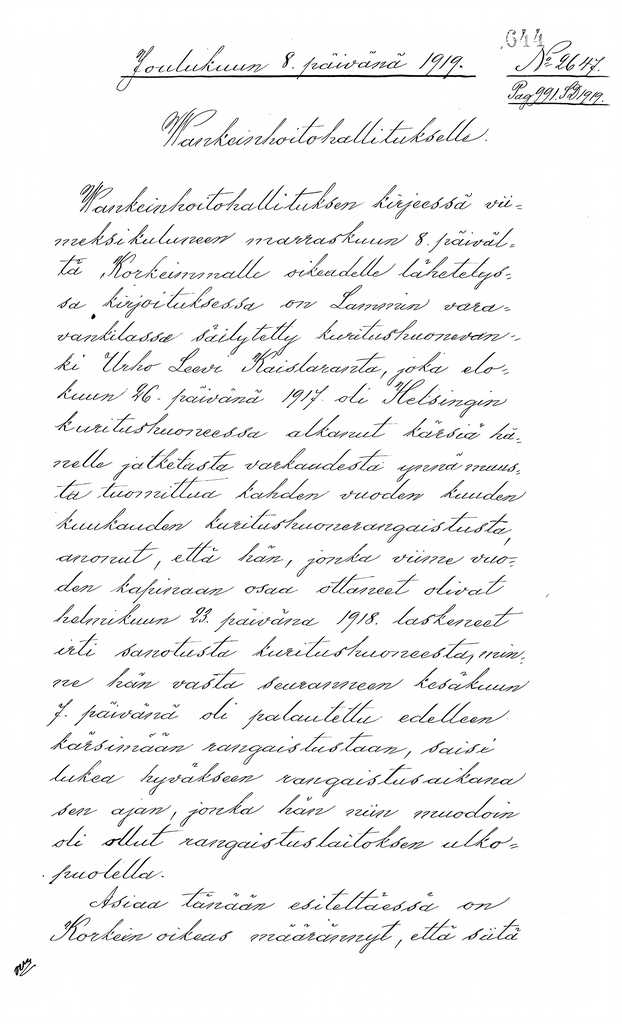 644
Joulukuun 8. päivänä 1919.
No 2647.
Pag 991. SD 1919.
Wankeinhoitohallitukselle.
Wankeinhoitohallituksen kirjeessä vii=
meksikuluneen marraskuun 8. päiväl=
tä Korkeimmalle oikeudelle lähetetys=
sä kirjoituksessa on Lammin vara=
vankilassa säilytetty kuritushuonevan=
ki Urho Leevi Kaislaranta, joka elo=
kuun 26. päivänä 1917 oli Helsingin
kuritushuoneessa alkanut kärsiä hä=
nelle jatketusta varkaudesta ynnä muus=
ta tuomittua kahden vuoden kuuden
kuukauden kuritushuonerangaistusta,
anonut, että hän, jonka viime vuo=
den kapinaan osaa ottaneet olivat
helmikuun 23. päivänä 1918. laskeneet
irti sanotusta kuritushuoneesta, min=
ne hän vasta seuranneen kesäkuun
7. päivänä oli palautettu edelleen
kärsimään rangaistustaan, saisi
lukea hyväkseen rangaistusaikana
sen ajan, jonka hän niin muodoin
oli ollut rangaistuslaitoksen ulko=
puolella.
Asiaa tänään esiteltäessä on
Korkein oikeus määrännyt, että siitä